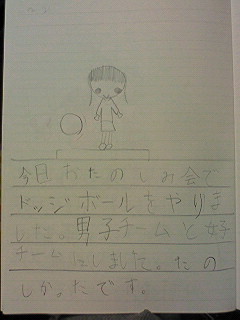 今日おたのしみ会で
ドッジボールをやりま
した。男子チームと女子
チームにしました。たの
しかったです。